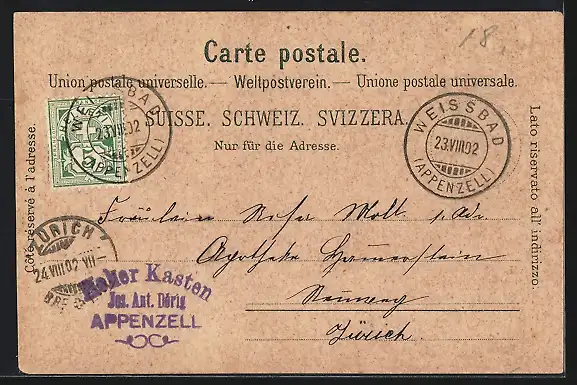 18.
Carte postale.
Union postale universelle. — Weltpostverein. — Unione postale universale.
SUISSE. SCHWEIZ. SVIZZERA.
Nur für die Adresse.
Côté réservé à l'adresse.
Lato riservato all' indirizzo.
WEISSBAD
23.VIII.02
(APPENZELL)
WEISSBAD
23.VIII.02
(APPENZELL)
Fräulein
Apotheke
Zürich
ZÜRICH
24.VIII.02.VII-
Hoher Kasten
Jos. Ant. Dörig
APPENZELL